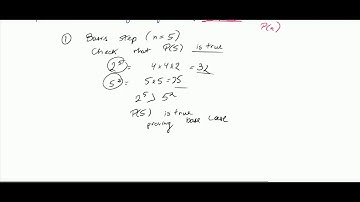 P(n)
① Basis step (n = 5)
Check that P(5) is true
2⁵ = 4 x 4 x 2 = 32
5² = 5 x 5 = 25
2⁵ > 5²
P(5) is true
proving base case